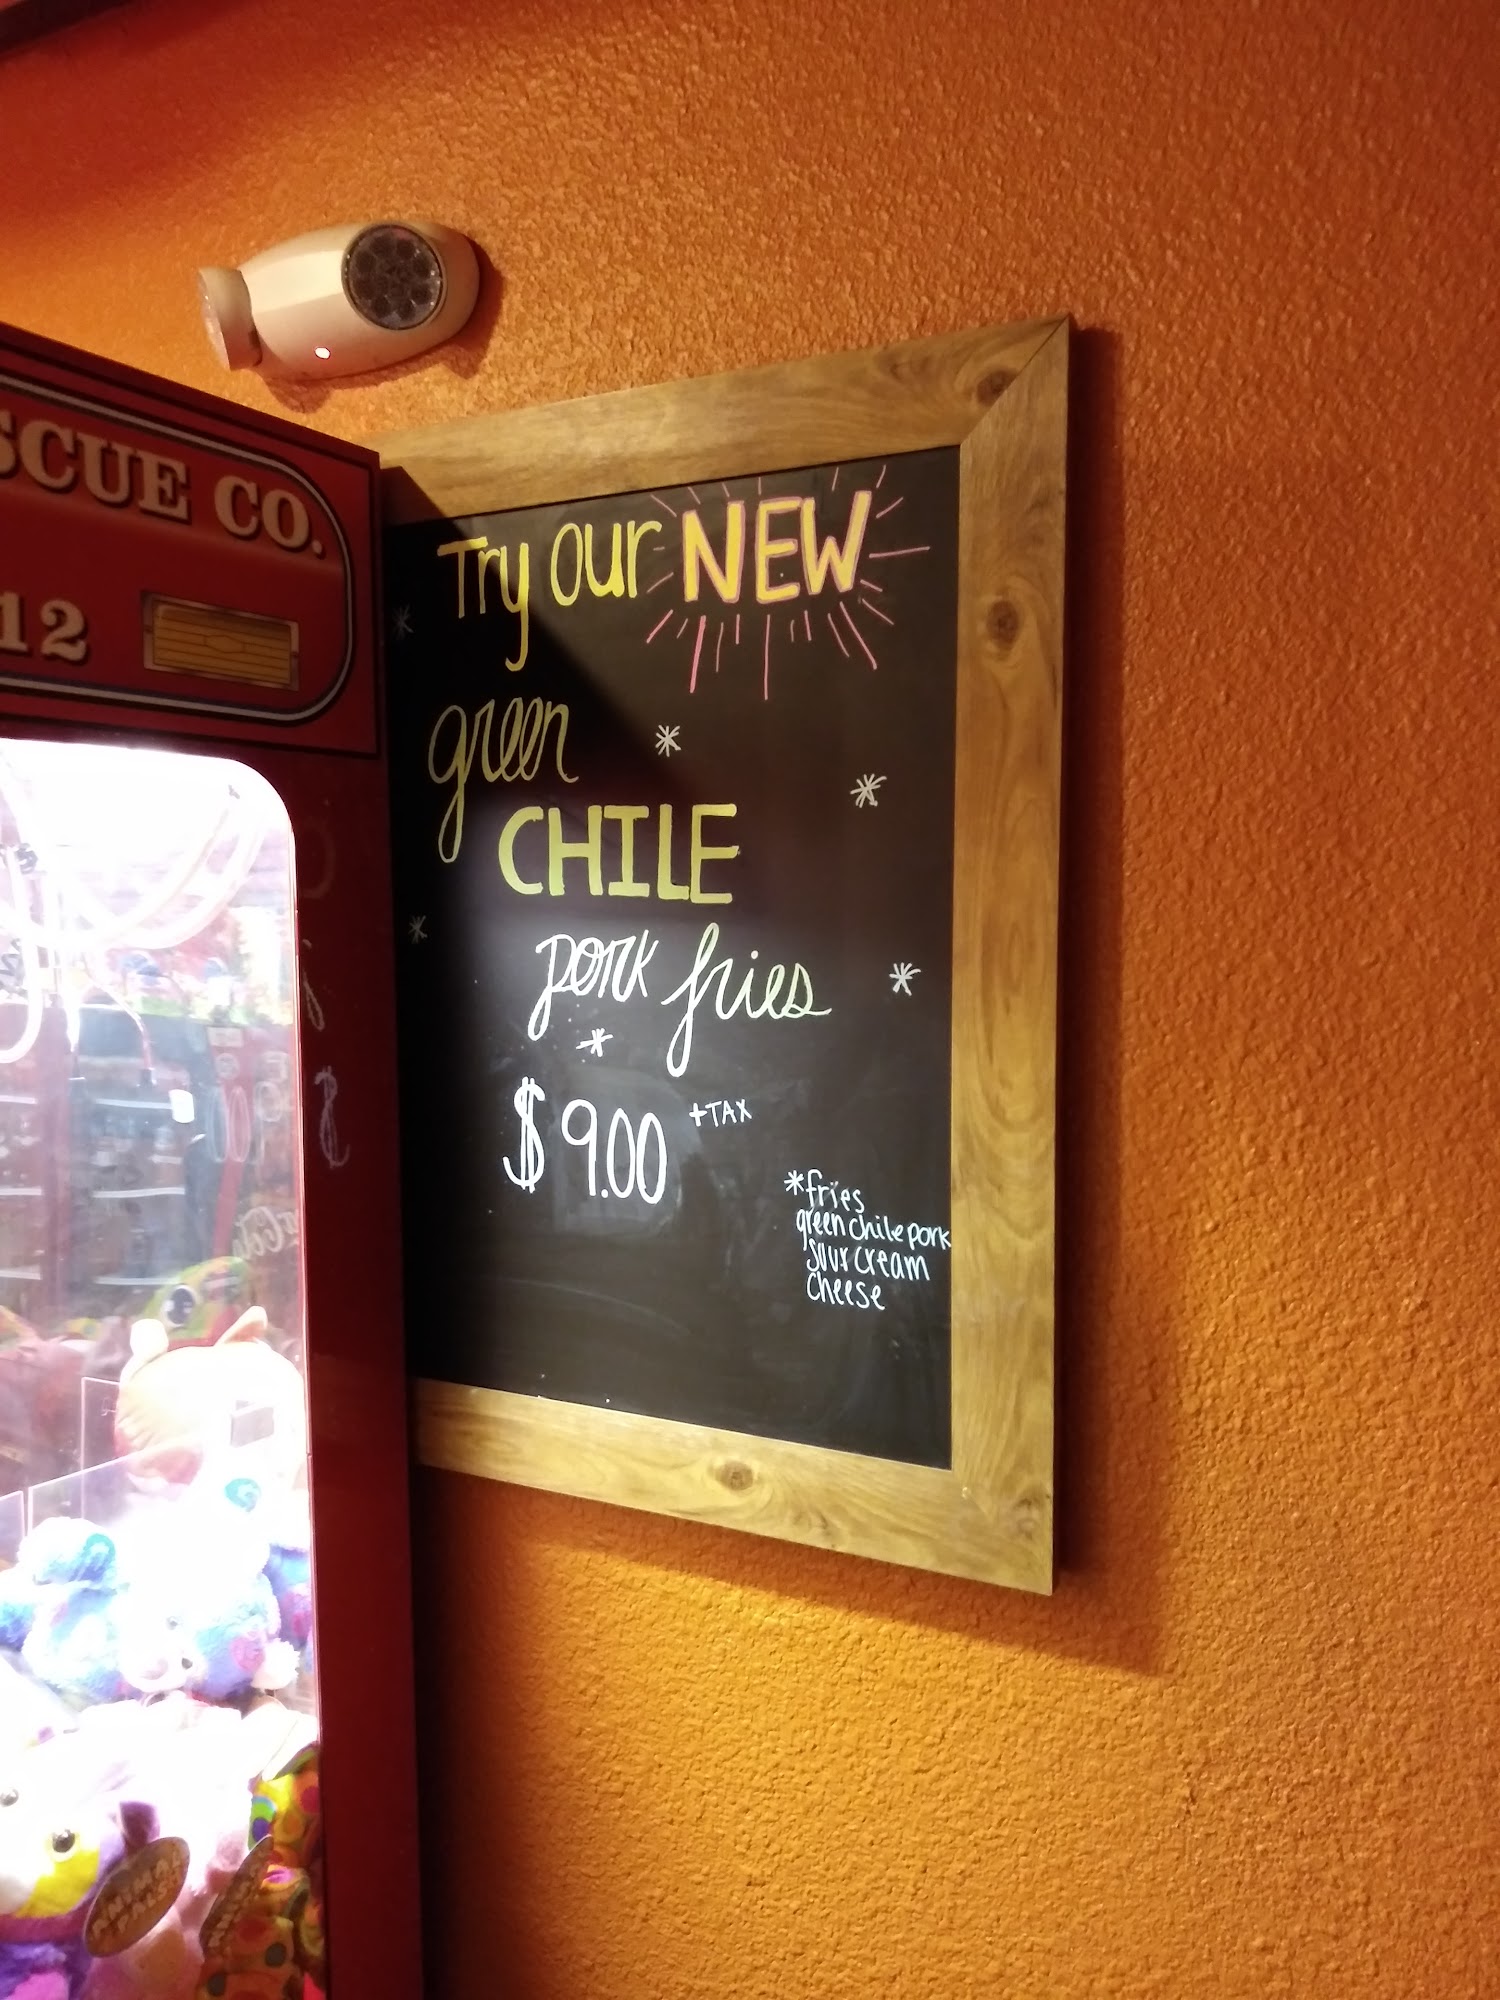 SCUE CO.
12
Try our NEW
green
CHILE
pork fries
*
$9.00 +TAX
*fries
green chile pork
sour cream
cheese
ANIMAL
PARK